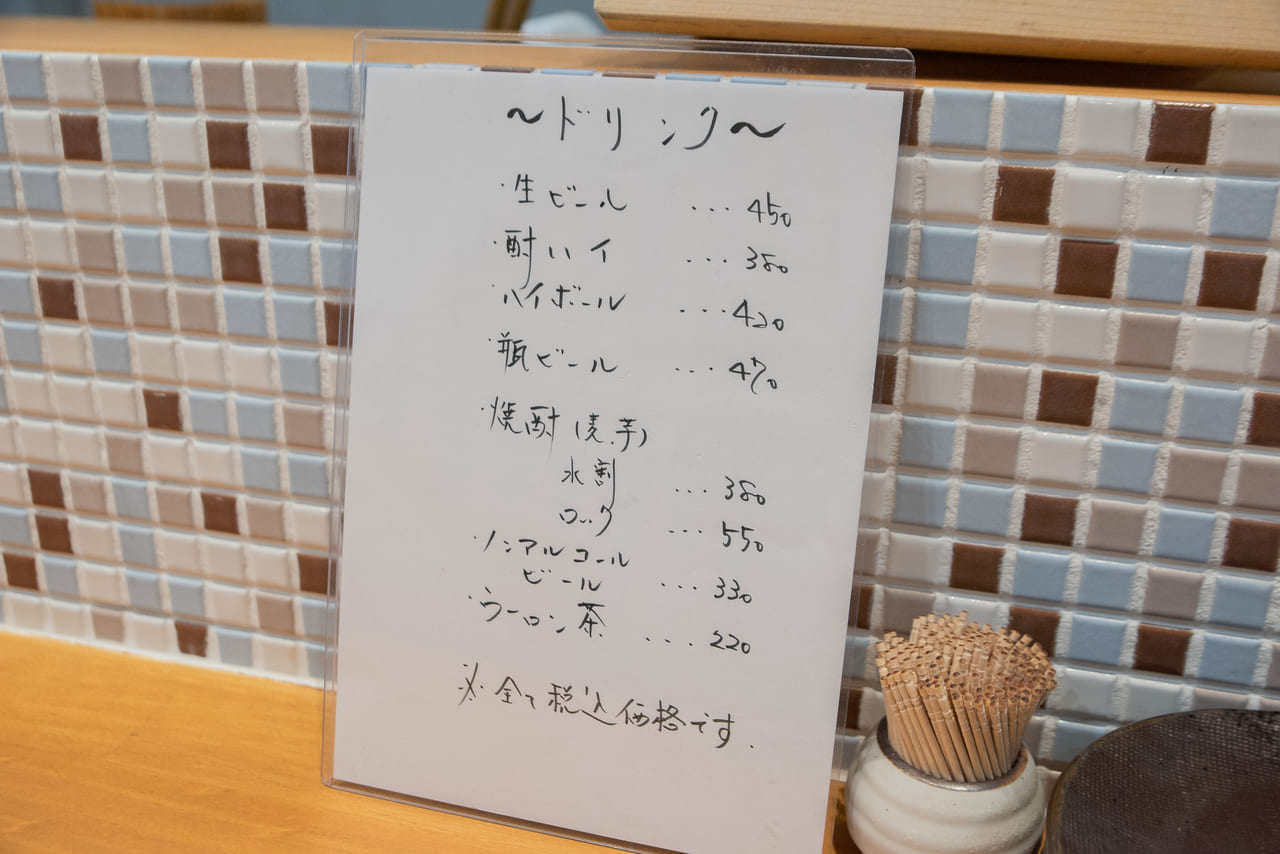 ～ドリンク～
・生ビール ... 450
・酎ハイ ... 380
・ハイボール ... 420
・瓶ビール ... 470
・焼酎(麦、芋)
水割 ... 380
ロック ... 550
・ノンアルコール
ビール ... 330
・ウーロン茶 ... 220
※全て税込価格です.